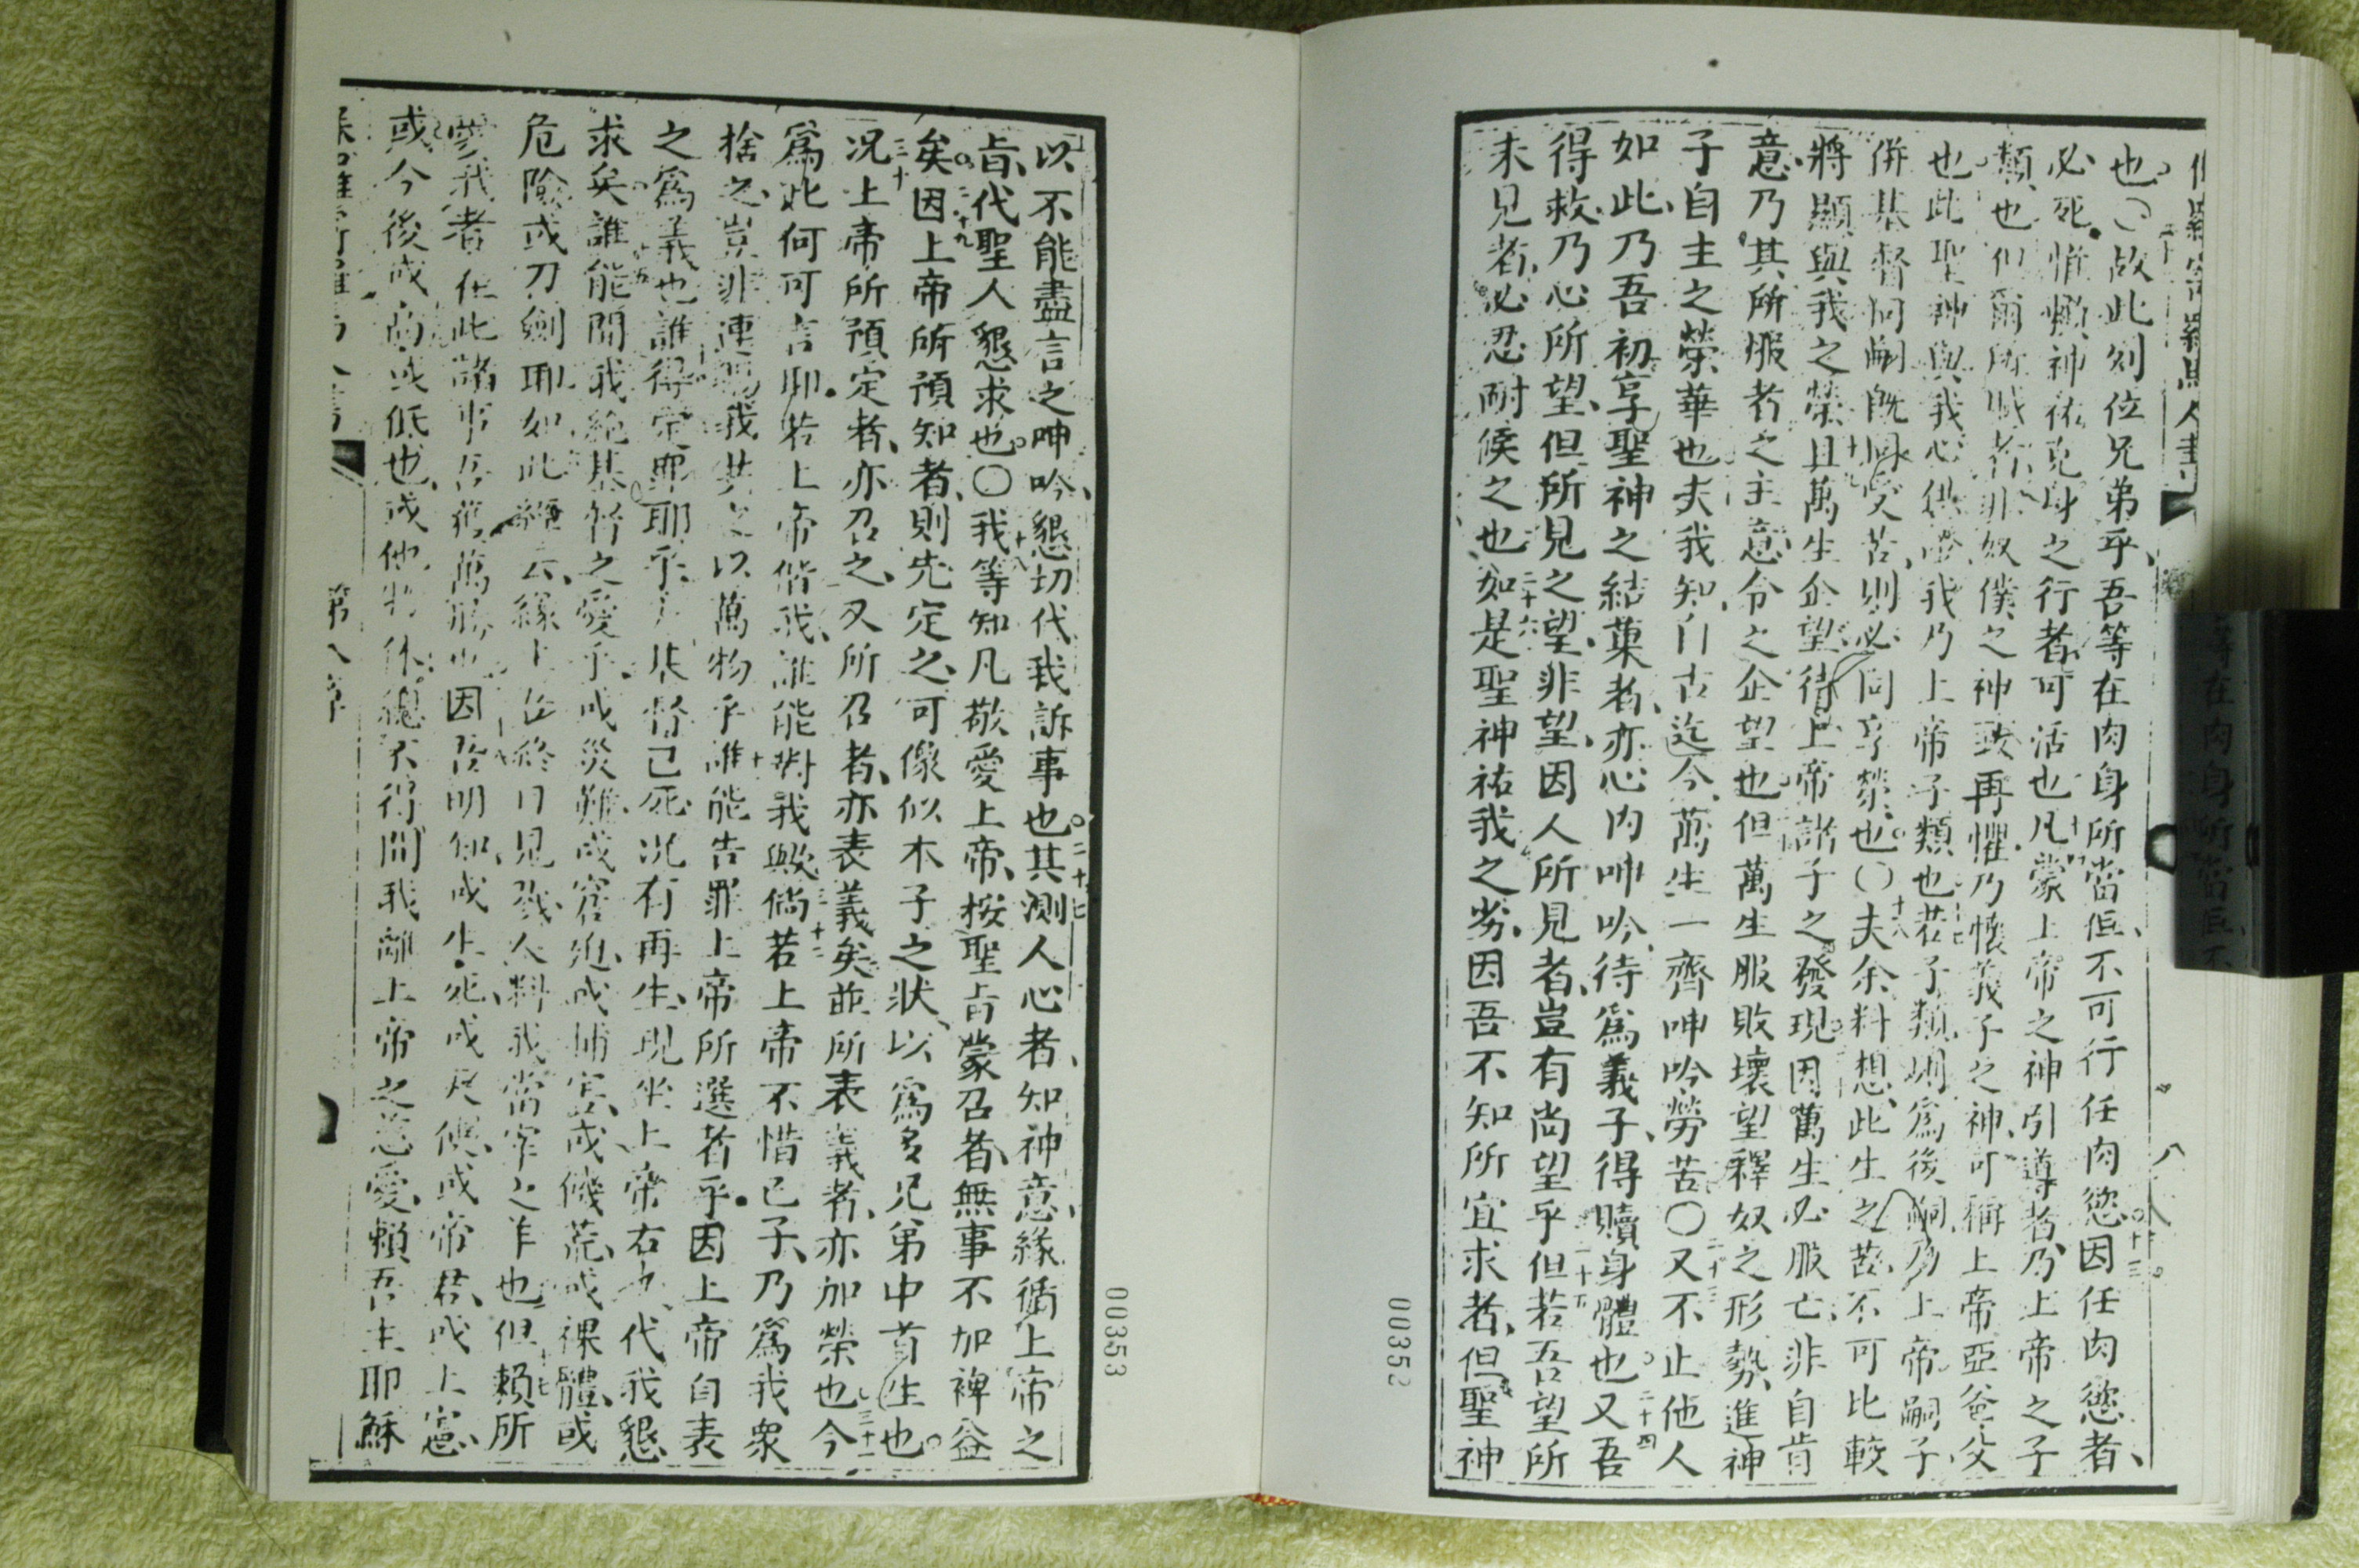 也○故此列位兄弟乎、吾等在肉身所當但、不可行任肉慾因任肉慾者、
必死、惟懒神祐克身之行者、可活也凡蒙上帝之神引導者、乃上帝之子
類也但爾所者非奴僕之神致再懼乃懷義子之神、可稱上帝亞爸父
也此聖神與我心供證我乃上帝子類也若子類則爲後嗣乃上帝嗣子、
併基督同嗣既同受苦、則必同享榮也○夫余料想、此生之苦、不可比較
將顯與我之榮且萬生企望待上帝諸子之發現因萬生必服亡非自肯
意、乃其所服者之主意、令之企望也但萬生服敗壞望釋奴之形勢進神
子自主之榮華也夫我知自古迄今、萬生一齊呻吟勞苦○又不止他人
如此、乃吾初享聖神之結菓者、亦心內呻吟待爲義子、得贖身體也又吾
得救、乃心所望、但所見之望、非望、因人所見者、豈有尚望乎但若吾望所
未見者、必忍耐候之也如是聖神祐我之劣、因吾不知所宜求者、但聖神
00352
以不能盡言之呻吟、懇切代我訴事也其測人心者、知神意、緣循上帝之
旨、代聖人懇求也○我等知凡敬愛上帝、按聖旨蒙召者、無事不加裨益
矣因上帝所預知者、則先定之、可像似本子之狀、以爲多兄弟中首生也
况上帝所預定者、亦召之、又所召者、亦表義矣並所表義者、亦加榮也今
爲此何可言耶若上帝偕我、誰能對我與倘若上帝不惜己子、乃爲我衆
捨之、豈非連賜我共之以萬物乎誰能告罪上帝所選者乎因上帝自表
之爲義也誰得定罪耶乎基督已死况有再生、現坐上帝右九、代我懇
求矣誰能間我絕基督之愛乎、或災難、或窘迫、或捕害、或饑荒、或裸體、或
危險或刀劍耶如此錄云、緣上帝終日見戮人料我當宰之羊也但賴所
愛我者在此諸事吾獲萬勝也因吾明知或生、死或天使、或帝君、或上憲、
或今後或高或低也、或他物体總不得間我離上帝之慈愛、賴吾主耶穌
第八章
00353